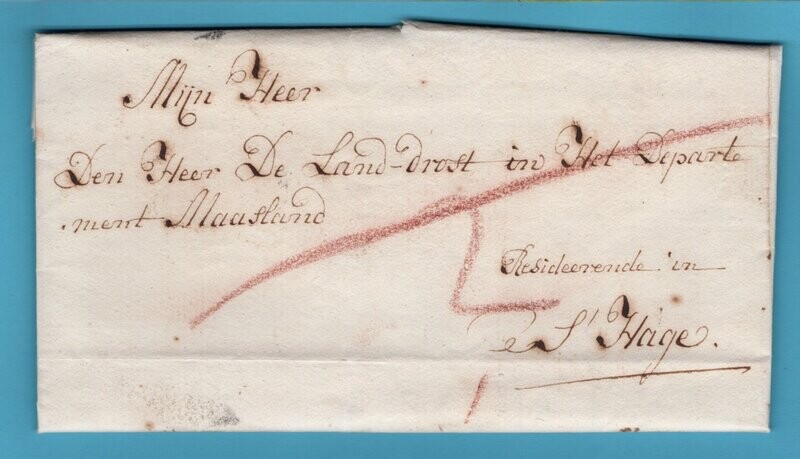 Mijn Heer
Den Heer De Land-drost in Het Departe
ment Maasland
Resideerende in
S' Hage.